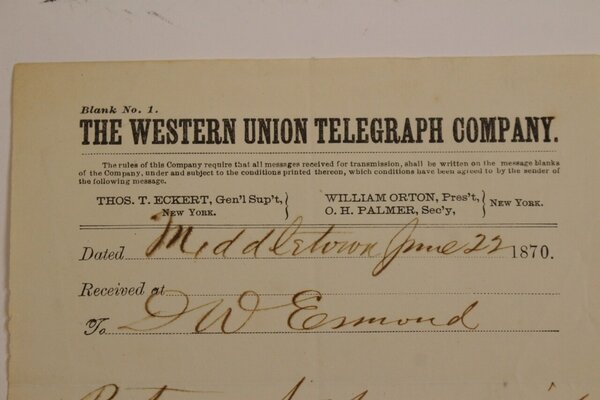 Blank No. 1.
THE WESTERN UNION TELEGRAPH COMPANY.
The rules of this Company require that all messages received for transmission, shall be written on the message blanks
of the Company, under and subject to the conditions printed thereon, which conditions have been agreed to by the sender of
the following message.
THOS. T. ECKERT, Gen'l Sup't,
NEW YORK.
WILLIAM ORTON, Pres't,
O. H. PALMER, Sec'y,
NEW YORK.
Dated Middletown June 22 1870.
Received at
To D W Esmond